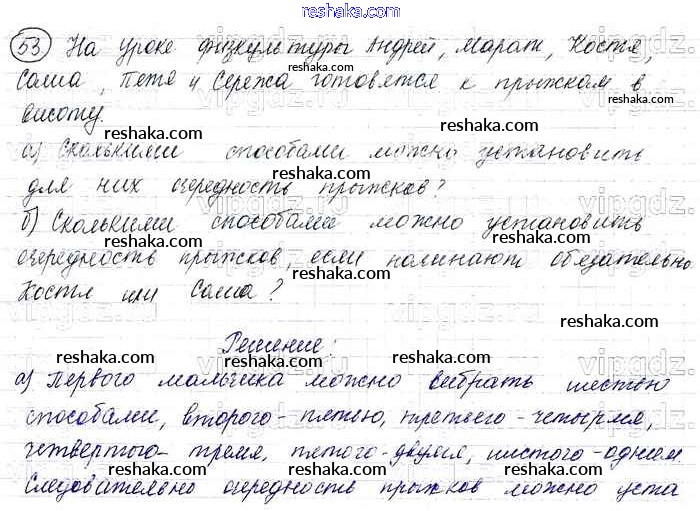 reshaka.com
53 На уроке физкультуры Андрей, Марат, Костя,
Саша, Петя и Сережа готовятся к прыжкам в
высоту.
reshaka.com reshaka.com
а) Сколькими способами можно установить
для них очередность прыжков?
reshaka.com reshaka.com
б) Сколькими способами можно установить
reshaka.com reshaka.com
очередность прыжков, если начинают обязательно
Костя или Саша?
reshaka.com reshaka.com
vipgdz.com
Решение:
reshaka.com reshaka.com
а) Первого мальчика можно выбрать шестью
способами, второго - пятью, третьего - четырмя,
reshaka.com reshaka.com
четвертого - тремя, пятого - двумя, шистого - одним.
reshaka.com reshaka.com
Следовательно очередность прыжков можно уста
reshaka.com reshaka.com